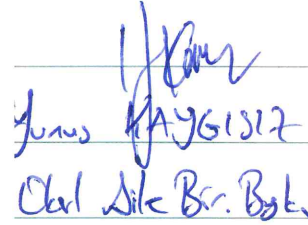 Yunus KAYGISIZ
Okul Aile Bir. Bşk.